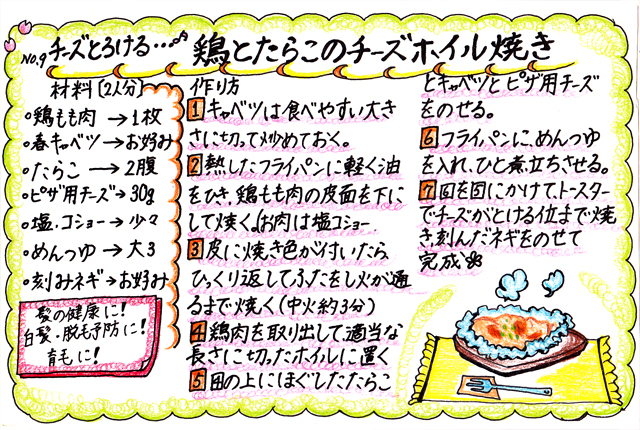 NO.9 チーズとろける…♪ 鶏とたらこのチーズホイル焼き
材料〔2人分〕
•鶏もも肉→1枚
•春キャベツ→お好み
•たらこ→2腹
•ピザ用チーズ→30g
•塩・コショー→少々
•めんつゆ→大3
•刻みネギ→お好み
髪の健康に!
白髪・脱毛予防に!
育毛に!
作り方
1キャベツは食べやすい大き
さに切って炒めておく。
2熱したフライパンに軽く油
をひき、鶏もも肉の皮面を下に
して焼く。お肉は塩コショー
3皮に焼き色が付いたら
ひっくり返してふたをし火が通
るまで焼く(中火約3分)
4鶏肉を取り出して、適当な
長さに切ったホイルに置く
5四の上にほぐしたたらこ
とキャベツとピザ用チーズ
をのせる。
6フライパンに、めんつゆ
を入れ、ひと煮立ちさせる。
7回を囙にかけて、トースター
でチーズがとける位まで焼
き、刻んだネギをのせて
完成